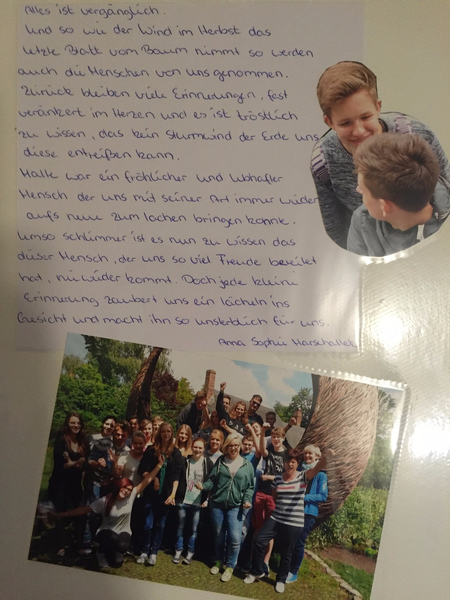 Alles ist vergänglich.
Und so wie der Wind im Herbst das
letzte Blatt vom Baum nimmt so werden
auch die Menschen von uns genommen.
Zurück bleiben viele Erinnerungen, fest
verankert im Herzen und es ist tröstlich
zu wissen, das kein Sturmwind der Erde uns
diese entreißen kann.
Malte war ein fröhlicher und lebhafter
Mensch der uns mit seiner Art immer wieder
aufs neue zum lachen bringen konnte.
Umso schlimmer ist es nun zu wissen das
dieser Mensch, der uns so viel Freude bereitet
hat, nie wieder kommt. Doch jede kleine
Erinnerung zaubert uns ein lächeln ins
Gesicht und macht ihn so unsterblich für uns.
Anna Sophie